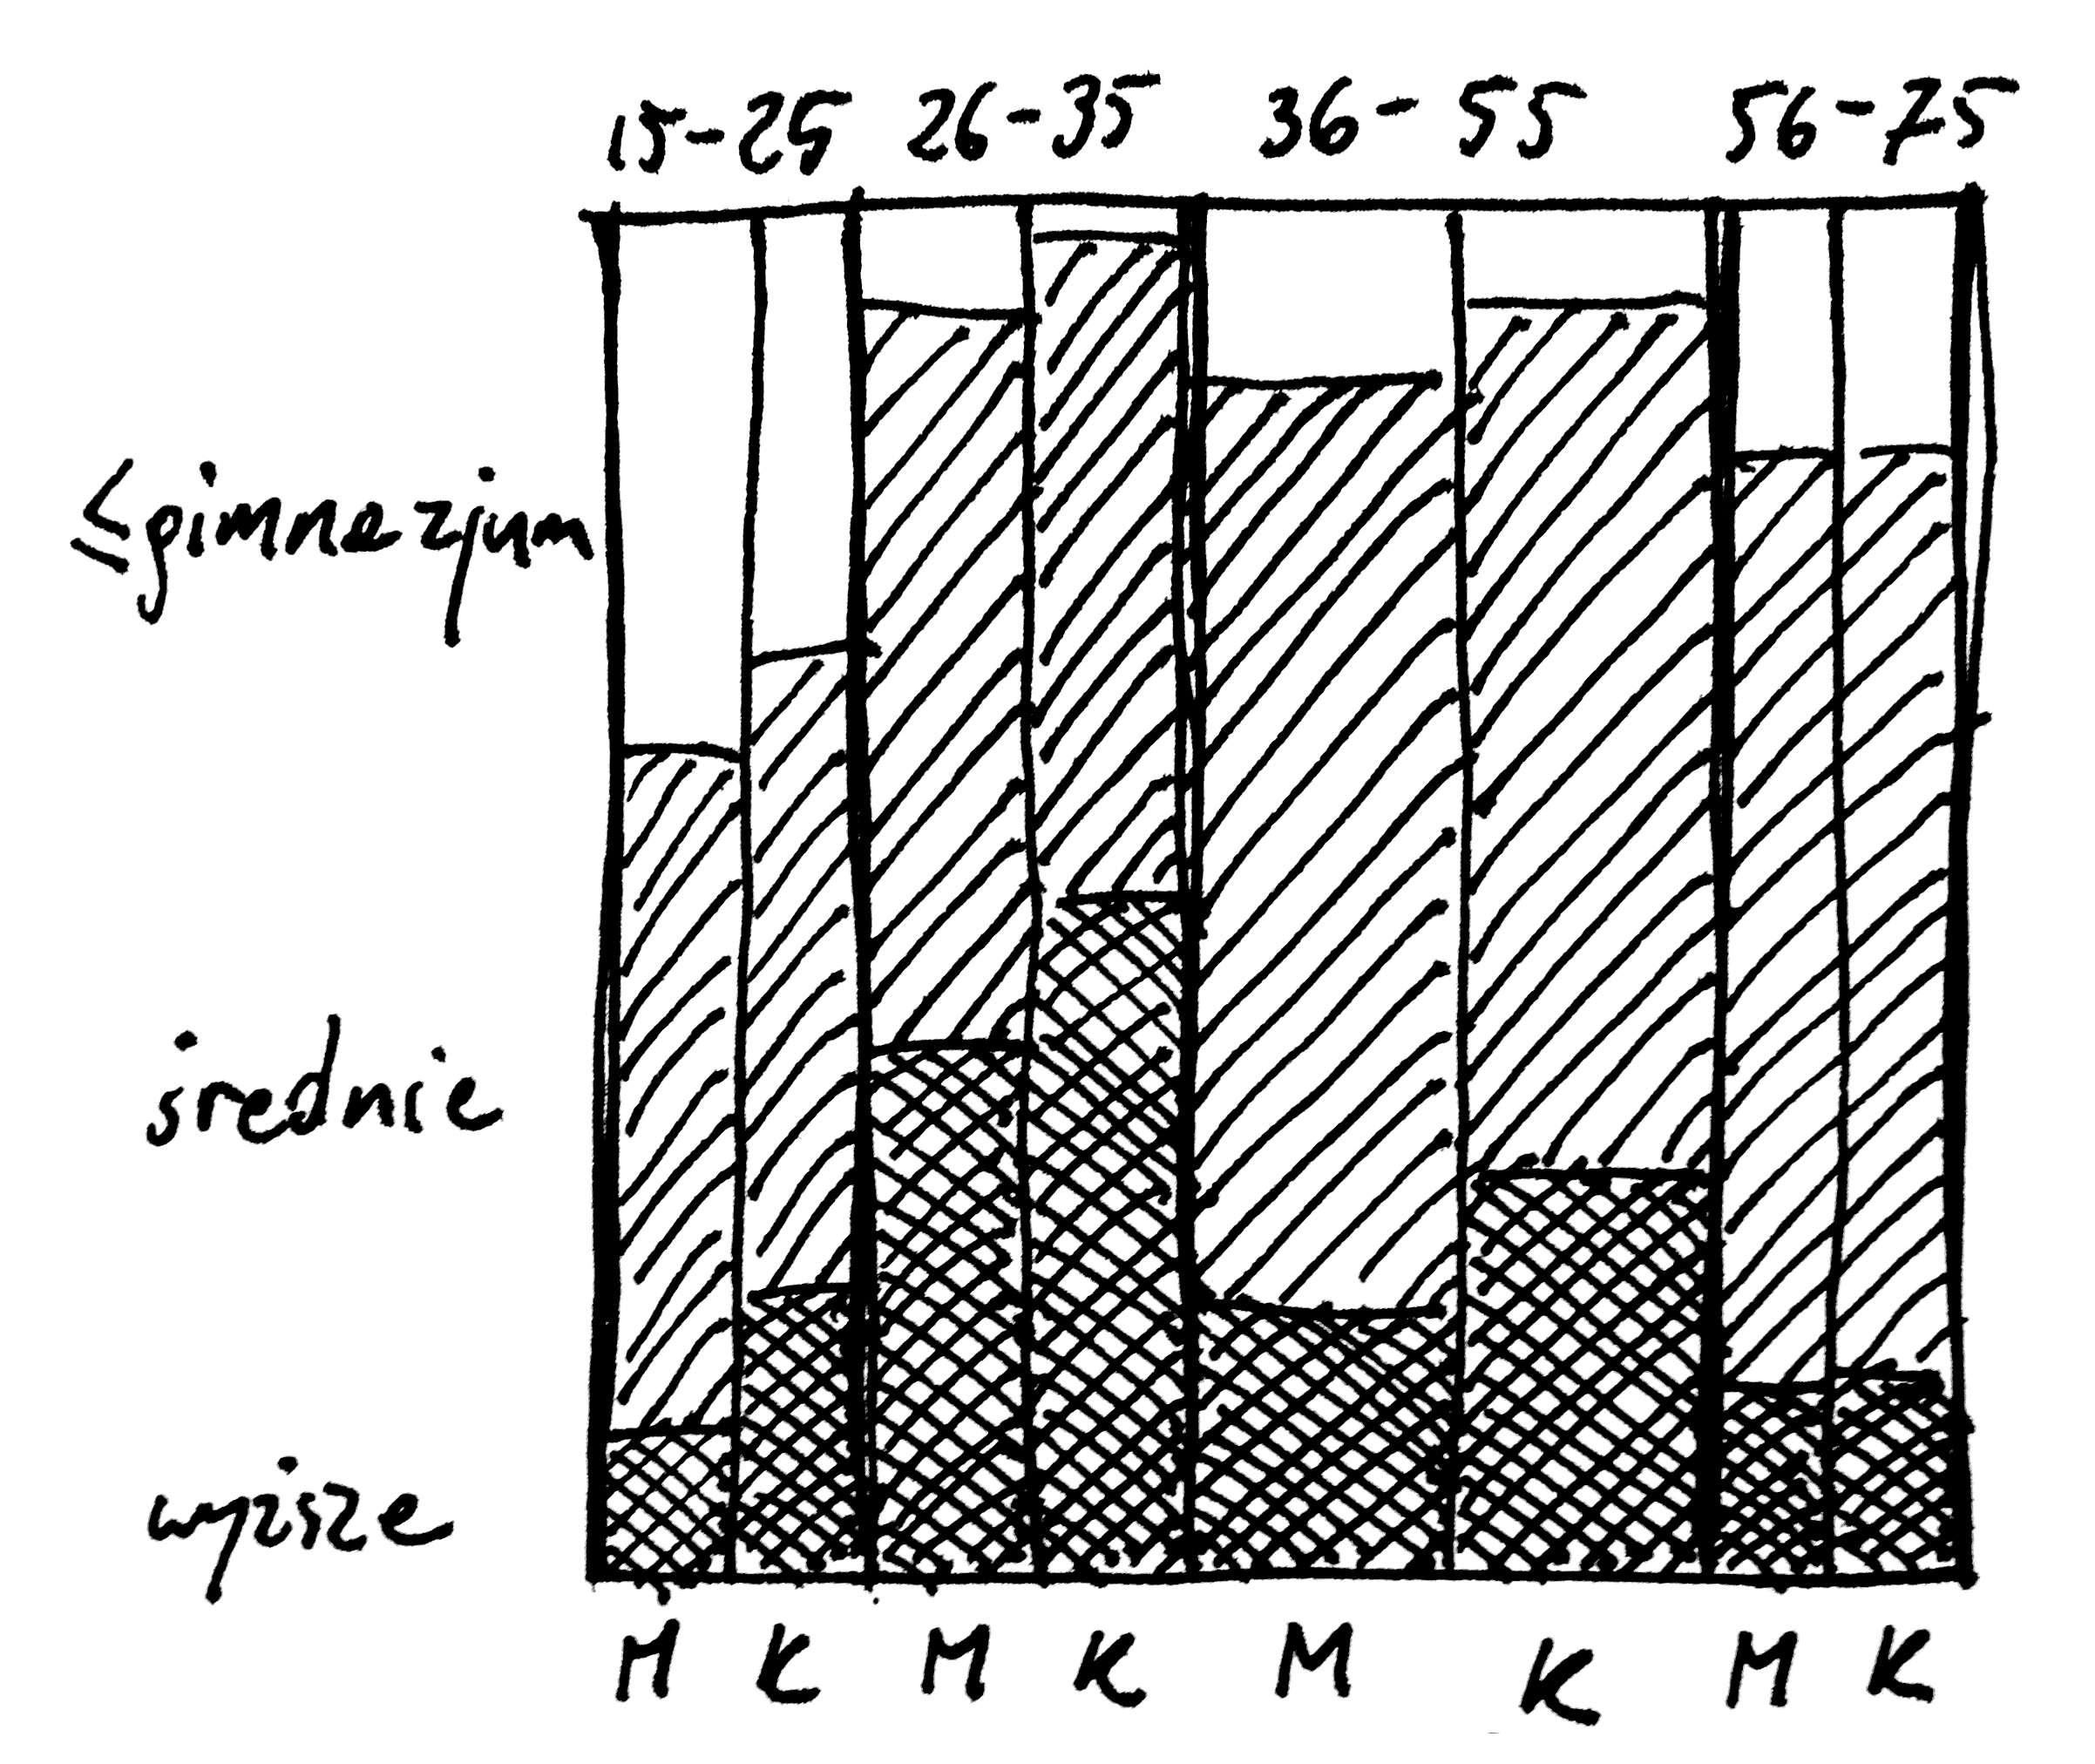 15-25 26-35 36-55 56-75
≤gimnazjum
średnie
wyższe
M K M K M K M K